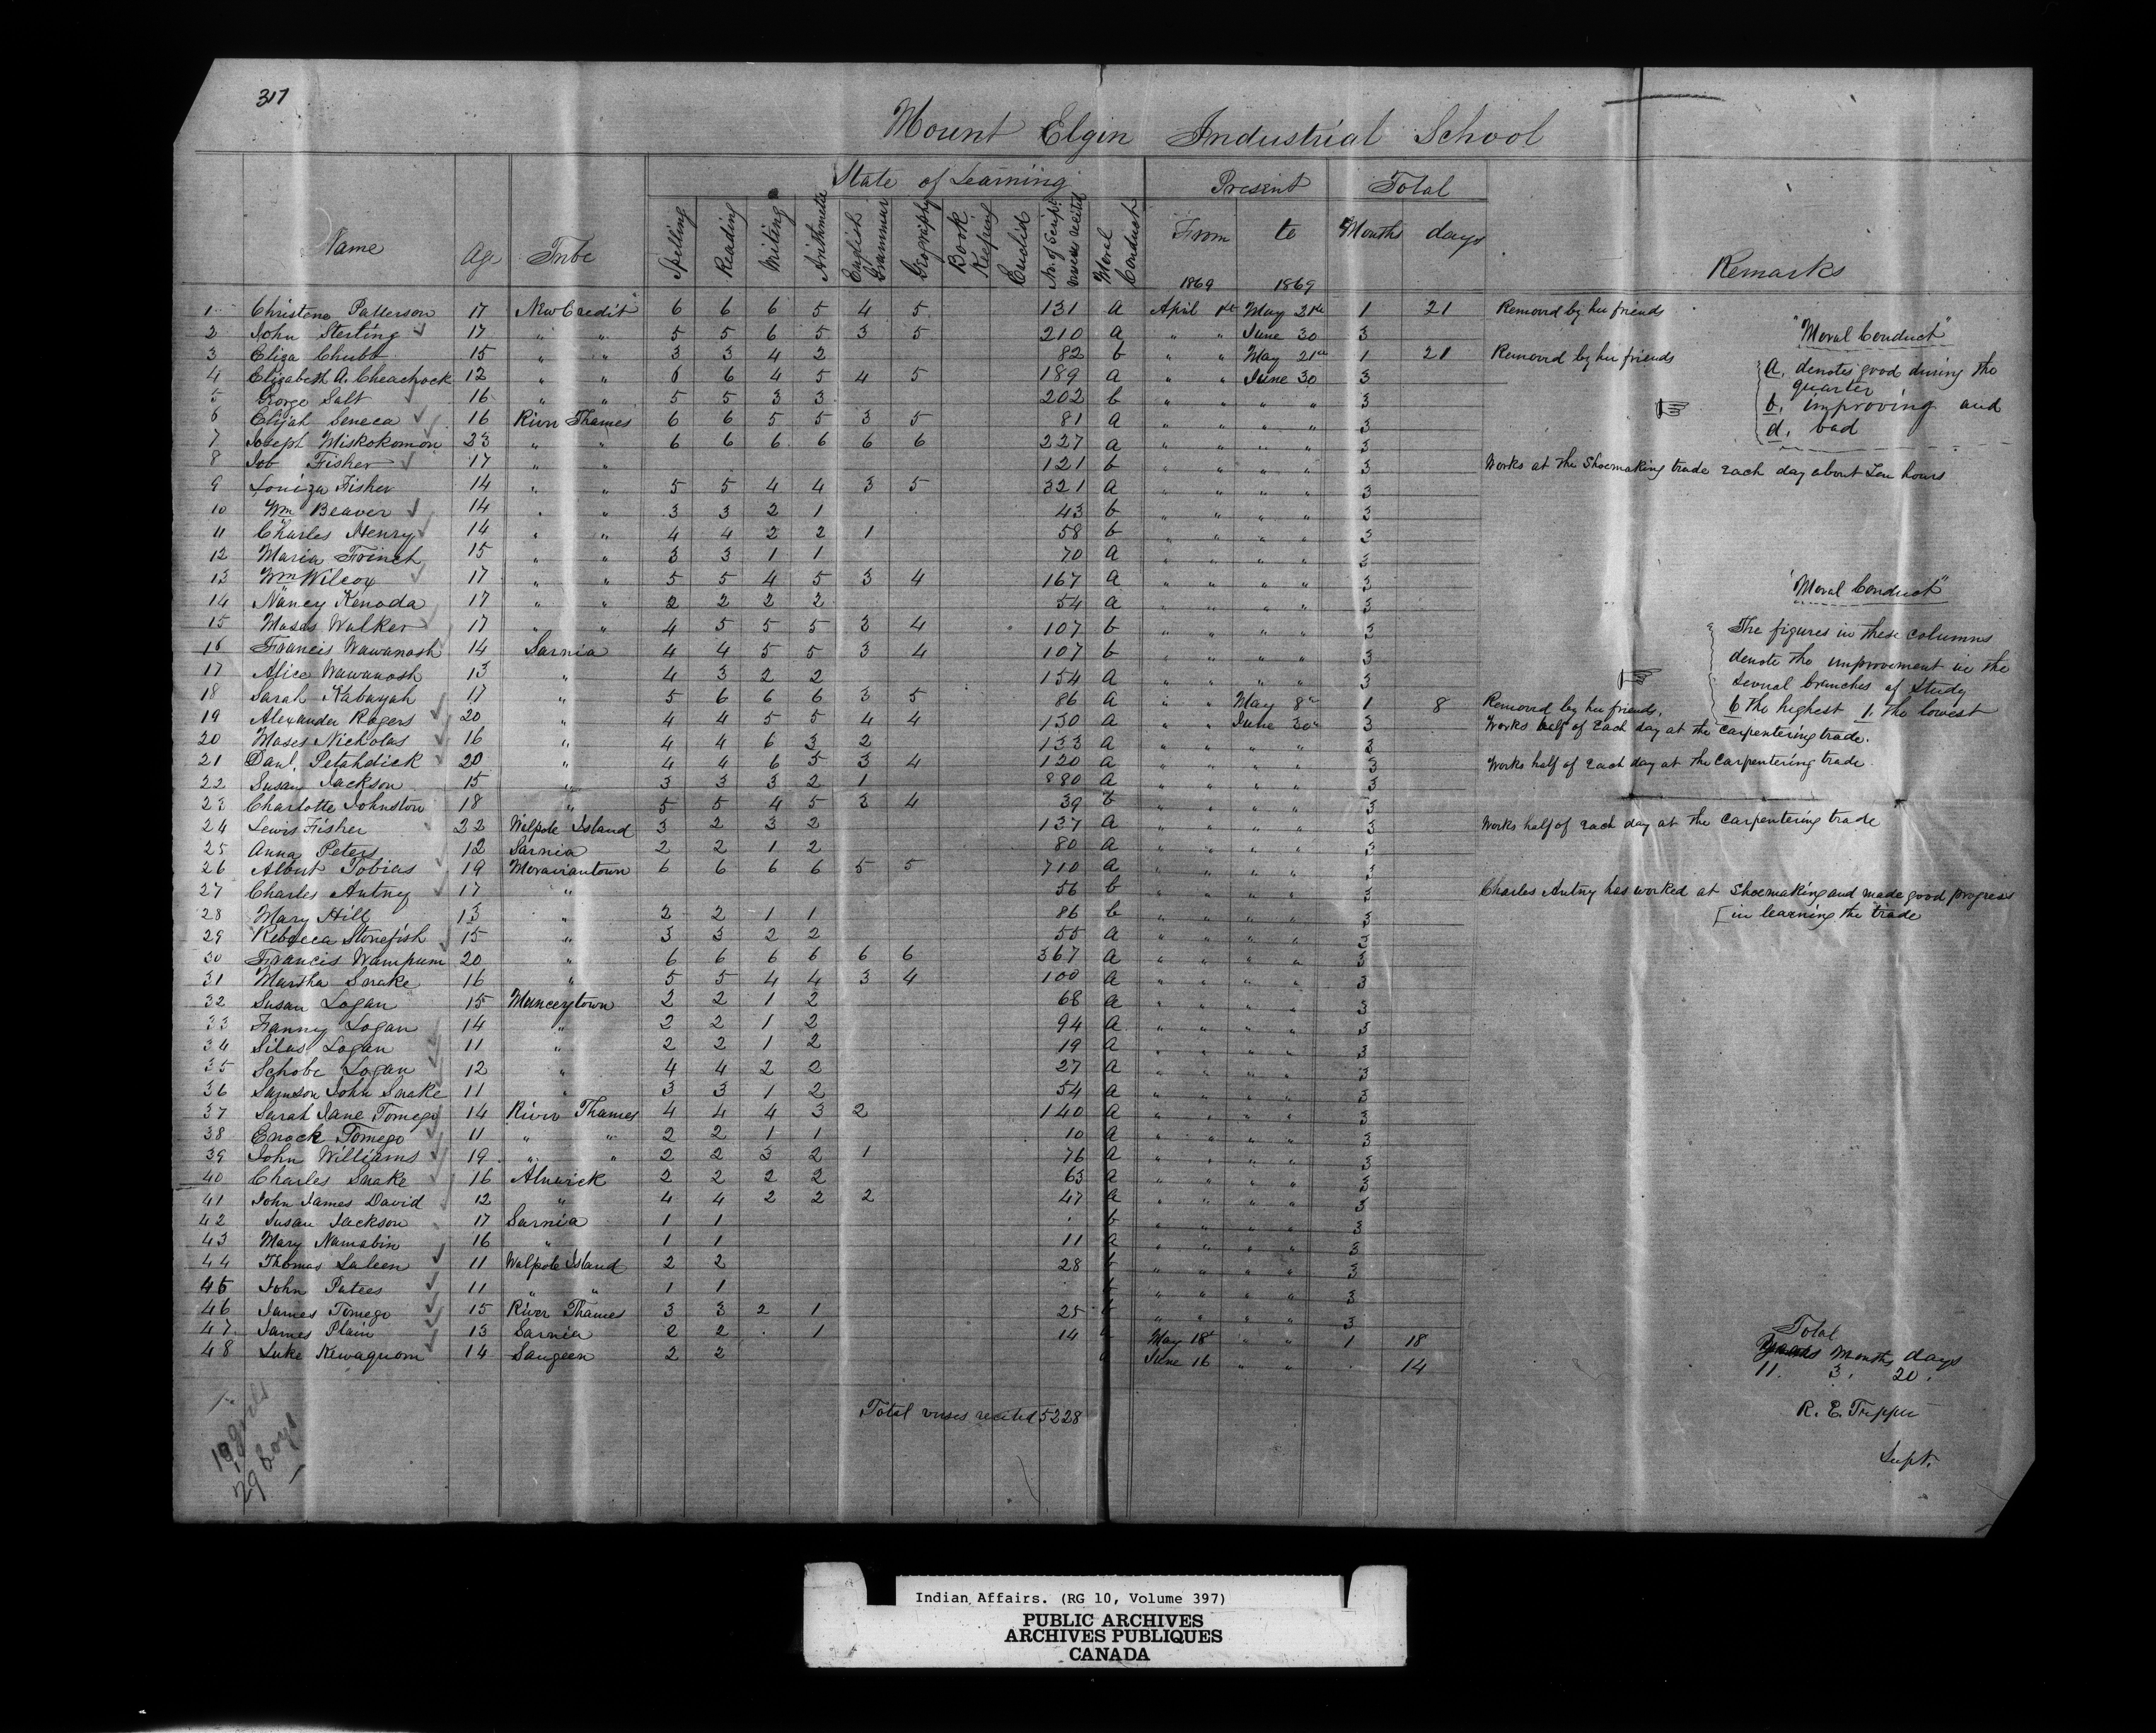 317
Mount Elgin Industrial School
State of Learning Present Total
Name Age Tribe Spelling Reading Writing Arithmetic English Grammar Geography Book Keeping Euclid No. of Script. verses recited Moral Conduct From 1869 to 1869 Months days Remarks
1 Christena Patterson 17 New Credit 6 6 6 5 4 5 131 a April 1st May 21st 1 21 Removed by her friends
2 John Sterling ✓ 17 " " 5 5 6 5 3 5 210 a " " June 30 3
3 Eliza Chubb 15 " " 3 3 4 2 82 b " " May 21st 1 21 Removed by her friends
4 Elizabeth A. Cheachock 12 " " 6 6 4 5 4 5 189 a " " June 30 3
5 George Salt ✓ 16 " " 5 5 3 3 202 b " " " " 3
6 Elijah Seneca ✓ 16 River Thames 6 6 5 5 3 5 81 a " " " " 3
7 Joseph Miskokomon ✓ 23 " " 6 6 6 6 6 6 227 a " " " " 3
8 Job Fisher ✓ 17 " " 121 b " " " " 3 Works at the Shoemaking trade each day about Ten hours
9 Louiza Fisher 14 " " 5 5 4 4 3 5 321 a " " " " 3
10 Wm Beaver ✓ 14 " " 3 3 2 1 43 b " " " " 3
11 Charles Henry ✓ 14 " " 4 4 2 2 1 58 b " " " " 3
12 Maria French 15 3 3 1 1 70 a " " " " 3
13 Wm Wilcox ✓ 17 " " 5 5 4 5 3 4 167 a " " " " 3
14 Nancy Kenoda 17 " " 2 2 2 2 54 a " " " " 3
15 Moses Walker ✓ 17 " " 4 5 5 5 3 4 107 b " " " " 3
16 Francis Wawanosh 14 Sarnia 4 4 5 5 3 4 107 b " " " " 3
17 Alice Wawanosh 13 " 4 3 2 2 154 a " " " " 3
18 Sarah Kabayah 17 " 5 6 6 6 3 5 86 a " " May 8th 1 8 Removed by her friends.
19 Alexander Rogers ✓ 20 " 4 4 5 5 4 4 130 a " " June 30th 3 Works half of each day at the carpentering trade.
20 Moses Nicholas ✓ 16 " 4 4 6 3 2 133 a " " " " 3
21 Danl. Petahdick ✓ 20 " 4 4 6 5 3 4 120 a " " " " 3 Works half of each day at the carpentering trade.
22 Susan Jackson 15 " 3 3 3 2 1 880 a " " " " 3
23 Charlotte Johnston 18 " 5 5 4 5 3 4 39 b " " " " 3
24 Lewis Fisher ✓ 22 Walpole Island 3 2 3 2 137 a " " " " 3 Works half of each day at the carpentering trade
25 Anna Peters 12 Sarnia 2 2 1 2 80 a " " " " 3
26 Albert Tobias ✓ 19 Moraviantown 6 6 6 6 5 5 710 a " " " " 3
27 Charles Antny ✓ 17 " 56 b " " " " 3 Charles Antny has worked at Shoemaking and made good progress
[in learning the trade
28 Mary Hill 13 " 2 2 1 1 86 b " " " " 3
29 Rebecca Stonefish 15 " 3 3 2 2 55 a " " " " 3
30 Francis Wampum ✓ 20 " 6 6 6 6 6 6 367 a " " " " 3
31 Martha Snake 16 " 5 5 4 4 3 4 100 a " " " " 3
32 Susan Logan 15 Munceytown 2 2 1 2 68 a " " " " 3
33 Fanny Logan 14 " 2 2 1 2 94 a " " " " 3
34 Silas Logan ✓ 11 " 2 2 1 2 19 a " " " " 3
35 Schobe Logan ✓ 12 " 4 4 2 2 27 a " " " " 3
36 Samson John Snake 11 " 3 3 1 2 54 a " " " " 3
37 Sarah Jane Tomego 14 River Thames 4 4 4 3 2 140 a " " " " 3
38 Enock Tomego ✓ 11 " " 2 2 1 1 10 a " " " " 3
39 John Williams ✓ 19 " " 2 2 3 2 1 76 a " " " " 3
40 Charles Snake ✓ 16 Alnwick 2 2 2 2 63 a " " " " 3
41 John James David ✓ 12 " 4 4 2 2 2 47 a " " " " 3
42 Susan Jackson 17 Sarnia 1 1 b " " " " 3
43 Mary Namabin 16 " 1 1 11 a " " " " 3
44 Thomas Saleen ✓ 11 Walpole Island 2 2 28 " " " " 3
45 John Patees ✓ 11 " " 1 1 " " " " 3
46 James Tomego ✓ 15 River Thames 3 3 2 1 25 " " " " 3
47 James Plain ✓ 13 Sarnia 2 2 1 14 May 18th " " 1 18
48 Luke Kewaquom ✓ 14 Saugeen 2 2 June 16 " " 14
Total verses recited 5228
19 girls
29 boys
"Moral Conduct"
a, denotes good during the
quarter,
b, improving and
d, bad
"Moral Conduct"
The figures in these columns
denote the improvement in the
several branches of study
6 the highest 1, the lowest
Total
Years Months days
11. 3. 20.
R. E. Tupper
Supt.
Indian Affairs. (RG 10, Volume 397)
PUBLIC ARCHIVES
ARCHIVES PUBLIQUES
CANADA